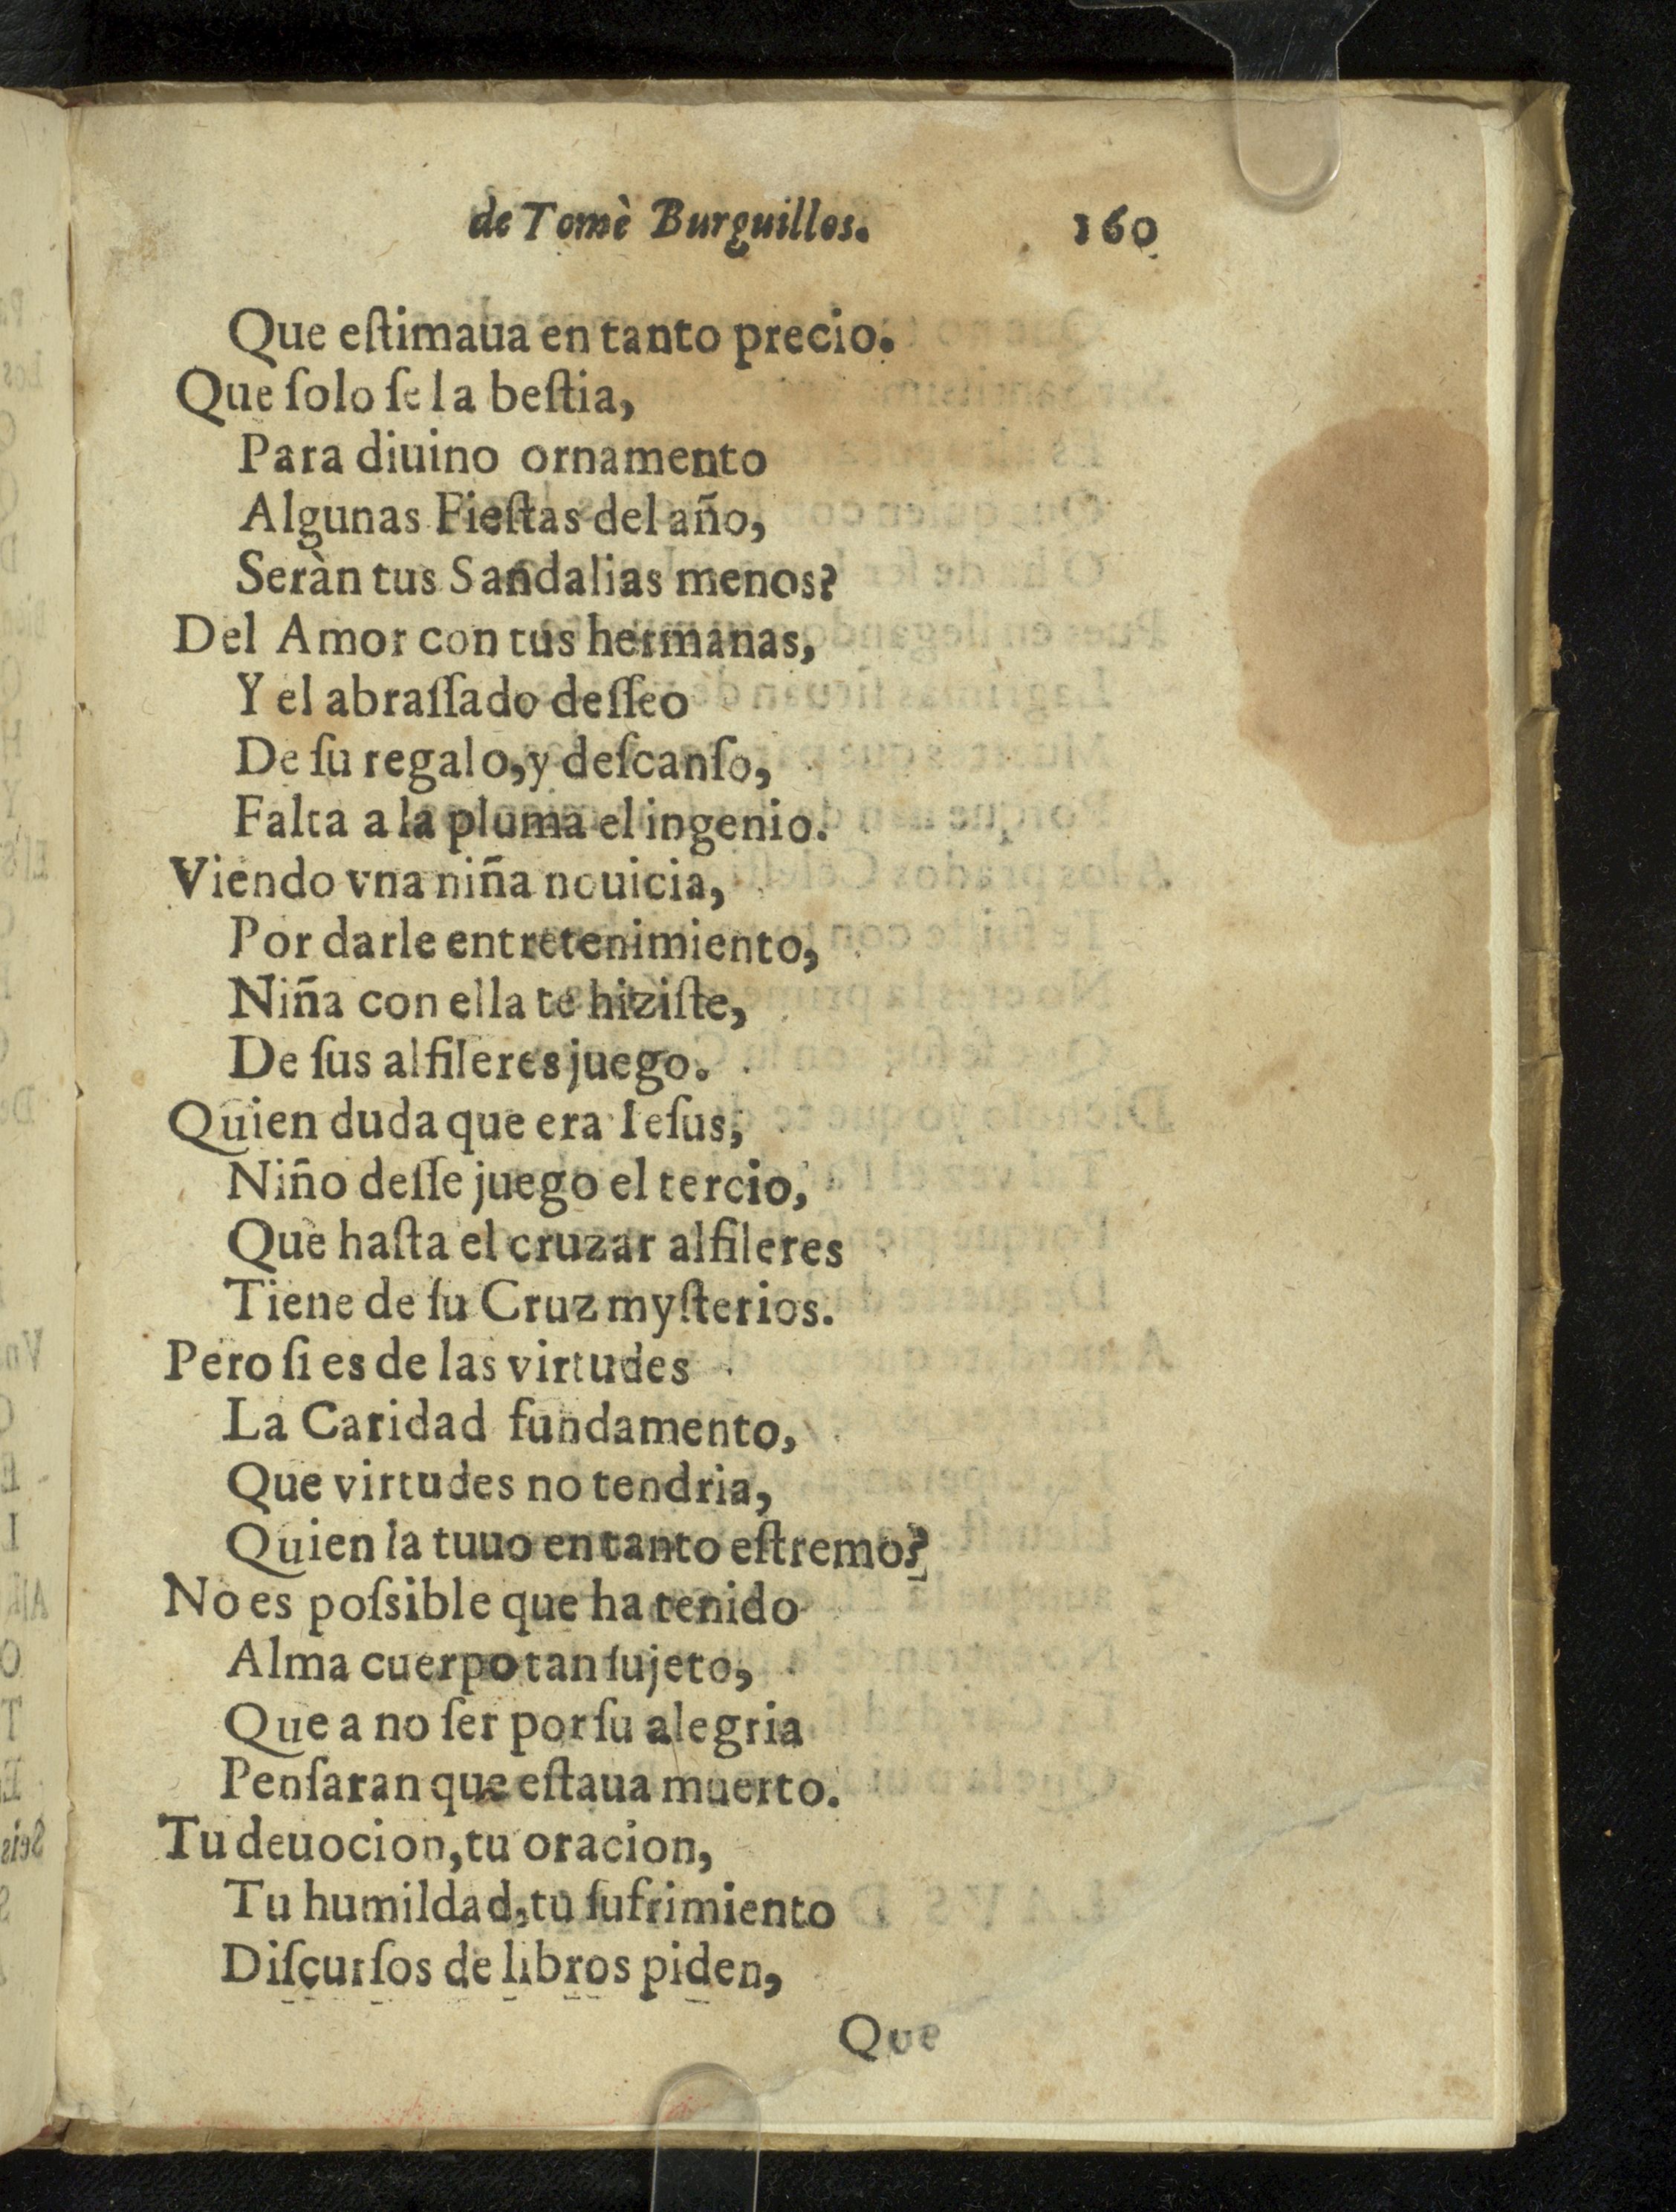 de Tomè Burguillos. 160
Que eſtimaua en tanto precio.
Que ſolo ſe la beſtia,
Para diuino ornamento
Algunas Fieſtas del año,
Seràn tus Sandalias menos?
Del Amor con tus hermanas,
Y el abraſſado deſſeo
De ſu regalo, y deſcanſo,
Falta a la pluma el ingenio.
Viendo vna niña nouicia,
Por darle entretenimiento,
Niña con ella te hiziſte,
De ſus alfileres juego.
Quien duda que era Ieſus,
Niño deſſe juego el tercio,
Que haſta el cruzar alfileres
Tiene de ſu Cruz myſterios.
Pero ſi es de las virtudes
La Caridad fundamento,
Que virtudes no tendria,
Quien la tuuo en tanto eſtremo?
No es poſsible que ha tenido
Alma cuerpo tan ſujeto,
Que a no ſer por ſu alegria
Penſaran que eſtaua muerto.
Tu deuocion, tu oracion,
Tu humildad, tu ſufrimiento
Diſcurſos de libros piden,
Que